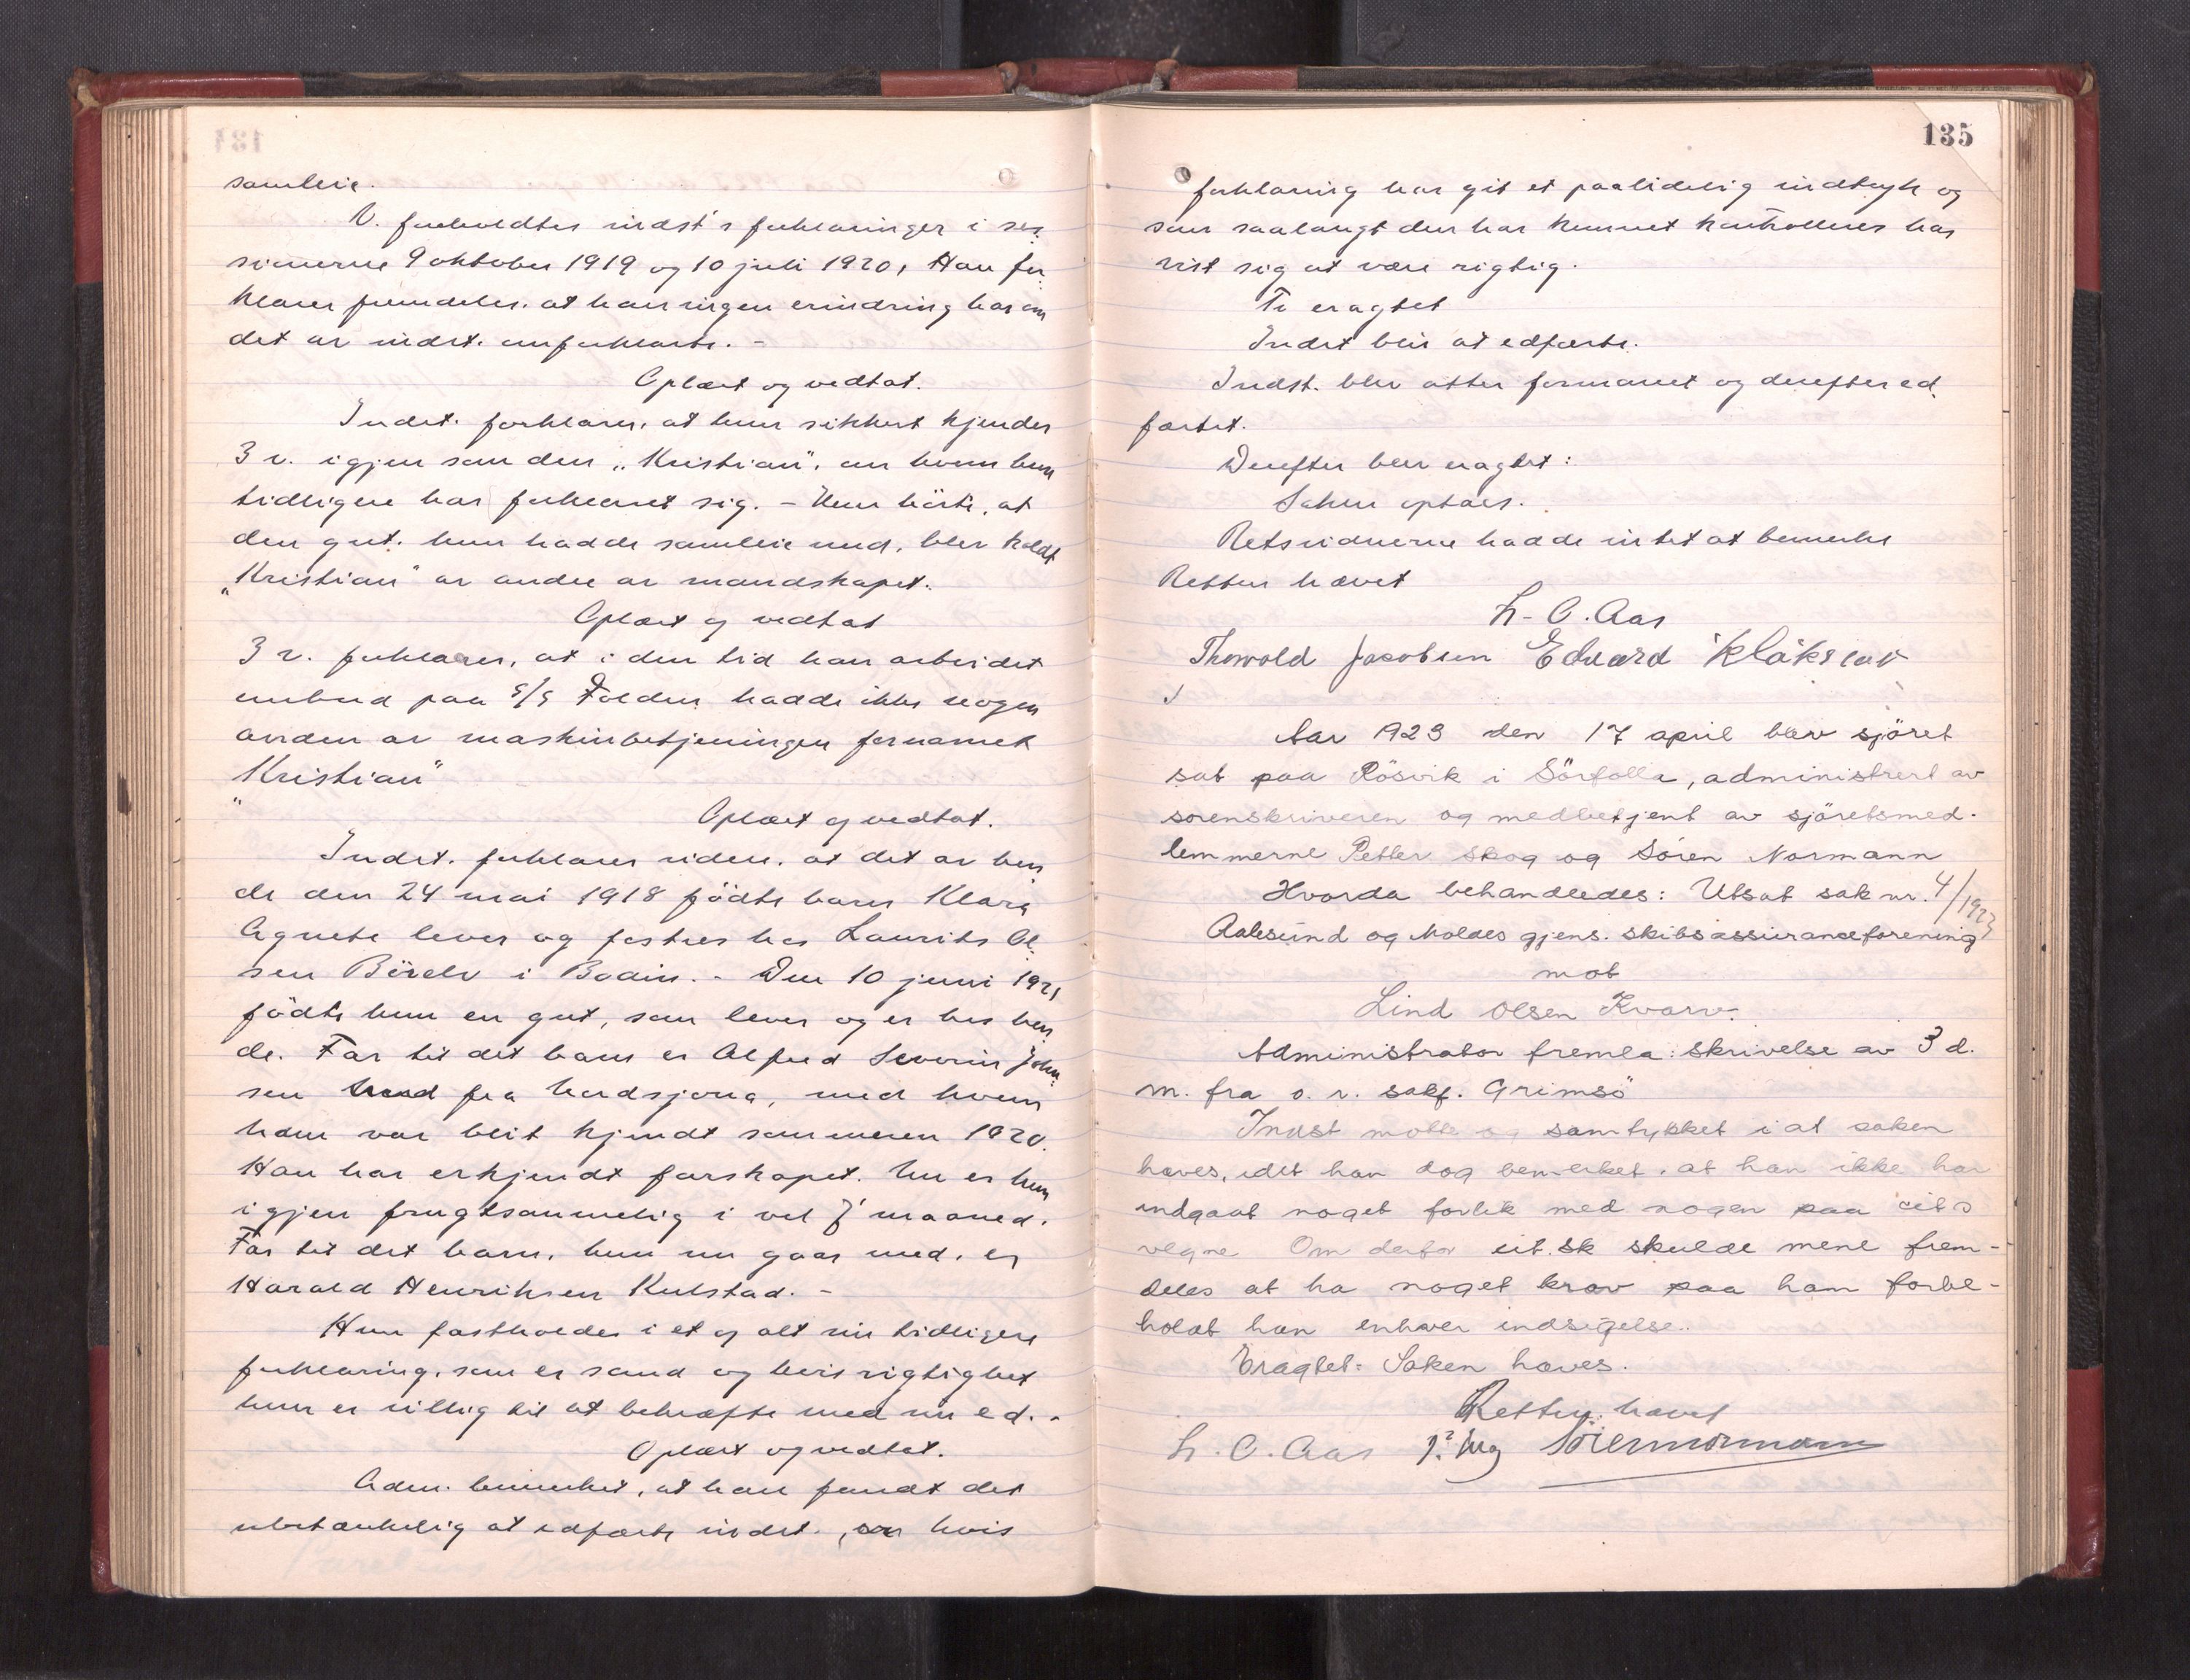 samleie.
V. foreholdtes indst's forklaringer i ses
sionerne 9 oktober 1919 og 10 juli 1920. Han for
klarer fremdeles, at han ingen erindring har om
det av indst. omforklarte. -
Oplæst og vedtat.
Indst. forklarer, at hun sikkert kjender
3 v. igjen som den „Kristian", om hvem hun
tidligere har forklaret sig. - Hun hörte, at
den gut, hun hadde samleie med, blev kaldt
„Kristian" av andre av mandskapet.
Oplæst og vedtat
3 v. forklarer, at i den tid han arbeidet
ombord paa s/s Folden hadde ikke nogen
anden av maskinbetjeningen fornavnet
„Kristian"
Oplæst og vedtat.
Indst. forklarer videre, at det av hen
de den 24 mai 1918 födte barn Klara
Agnete lever og fostres hos Laurits Ol
sen i Bodin. - Den 10 juni 1921
födte hun en gut, som lever og er hos hen
de. Far til det barn er Alfred Severin John
sen fra med hvem
hun var blit kjendt sommeren 1920.
Han har erkjendt farskapet. Nu er hun
igjen frugtsommelig i vel maaned.
Far til det barn, hun nu gaar med, er
Harald Henriksen Kulstad. -
Hun fastholder i et og alt sin tidligere
forklaring, som er sand og hvis rigtighet
hun er villig til at bekræfte med sin ed. -
Oplæst og vedtat.
Adm. bemerket, at han fandt det
ubetænkelig at edfæste indst., hvis
135
forklaring har git et paalidelig indtryk og
som saalangt den har kunnet kontrolleres har
vist sig at være rigtig.
Ti eragtet
Indst blir at edfæste.
Indst. blev atter formanet og derefter ed
fæstet.
Derefter blev eragtet:
Saken optaes.
Retsvidnerne hadde intet at bemerke
Retten hævet
L. C. Aas
Thorvald Jacobsen Edvard
Aar 1923 den 17 april blev sjöret
sat paa Rösvik i Sörfolla, administrert av
sorenskriveren og medbetjent av sjöretsmed-
lemmerne Petter Skog og Sören Normann
Hvorda behandledes: Utsat sak nr. 4/1923
Aalesund og Moldes gjens. skibsassuranceforening
mot
Lind Olsen Kvarv.
Administrator fremla: skrivelse av 3 d.
m. fra o. r. sakf. Grimsö
Indst mötte og samtykket i at saken
hæves, idet han dog bemerket, at han ikke har
indgaat noget forlik med nogen paa cit's
vegne Om derfor cit. sk skulde mene frem-
deles at ha noget krav paa ham forbe-
holdt han enhver indsigelse.
Eragtet: Saken hæves.
Retten hævet
L. C. Aas P. Skog Sören Normann